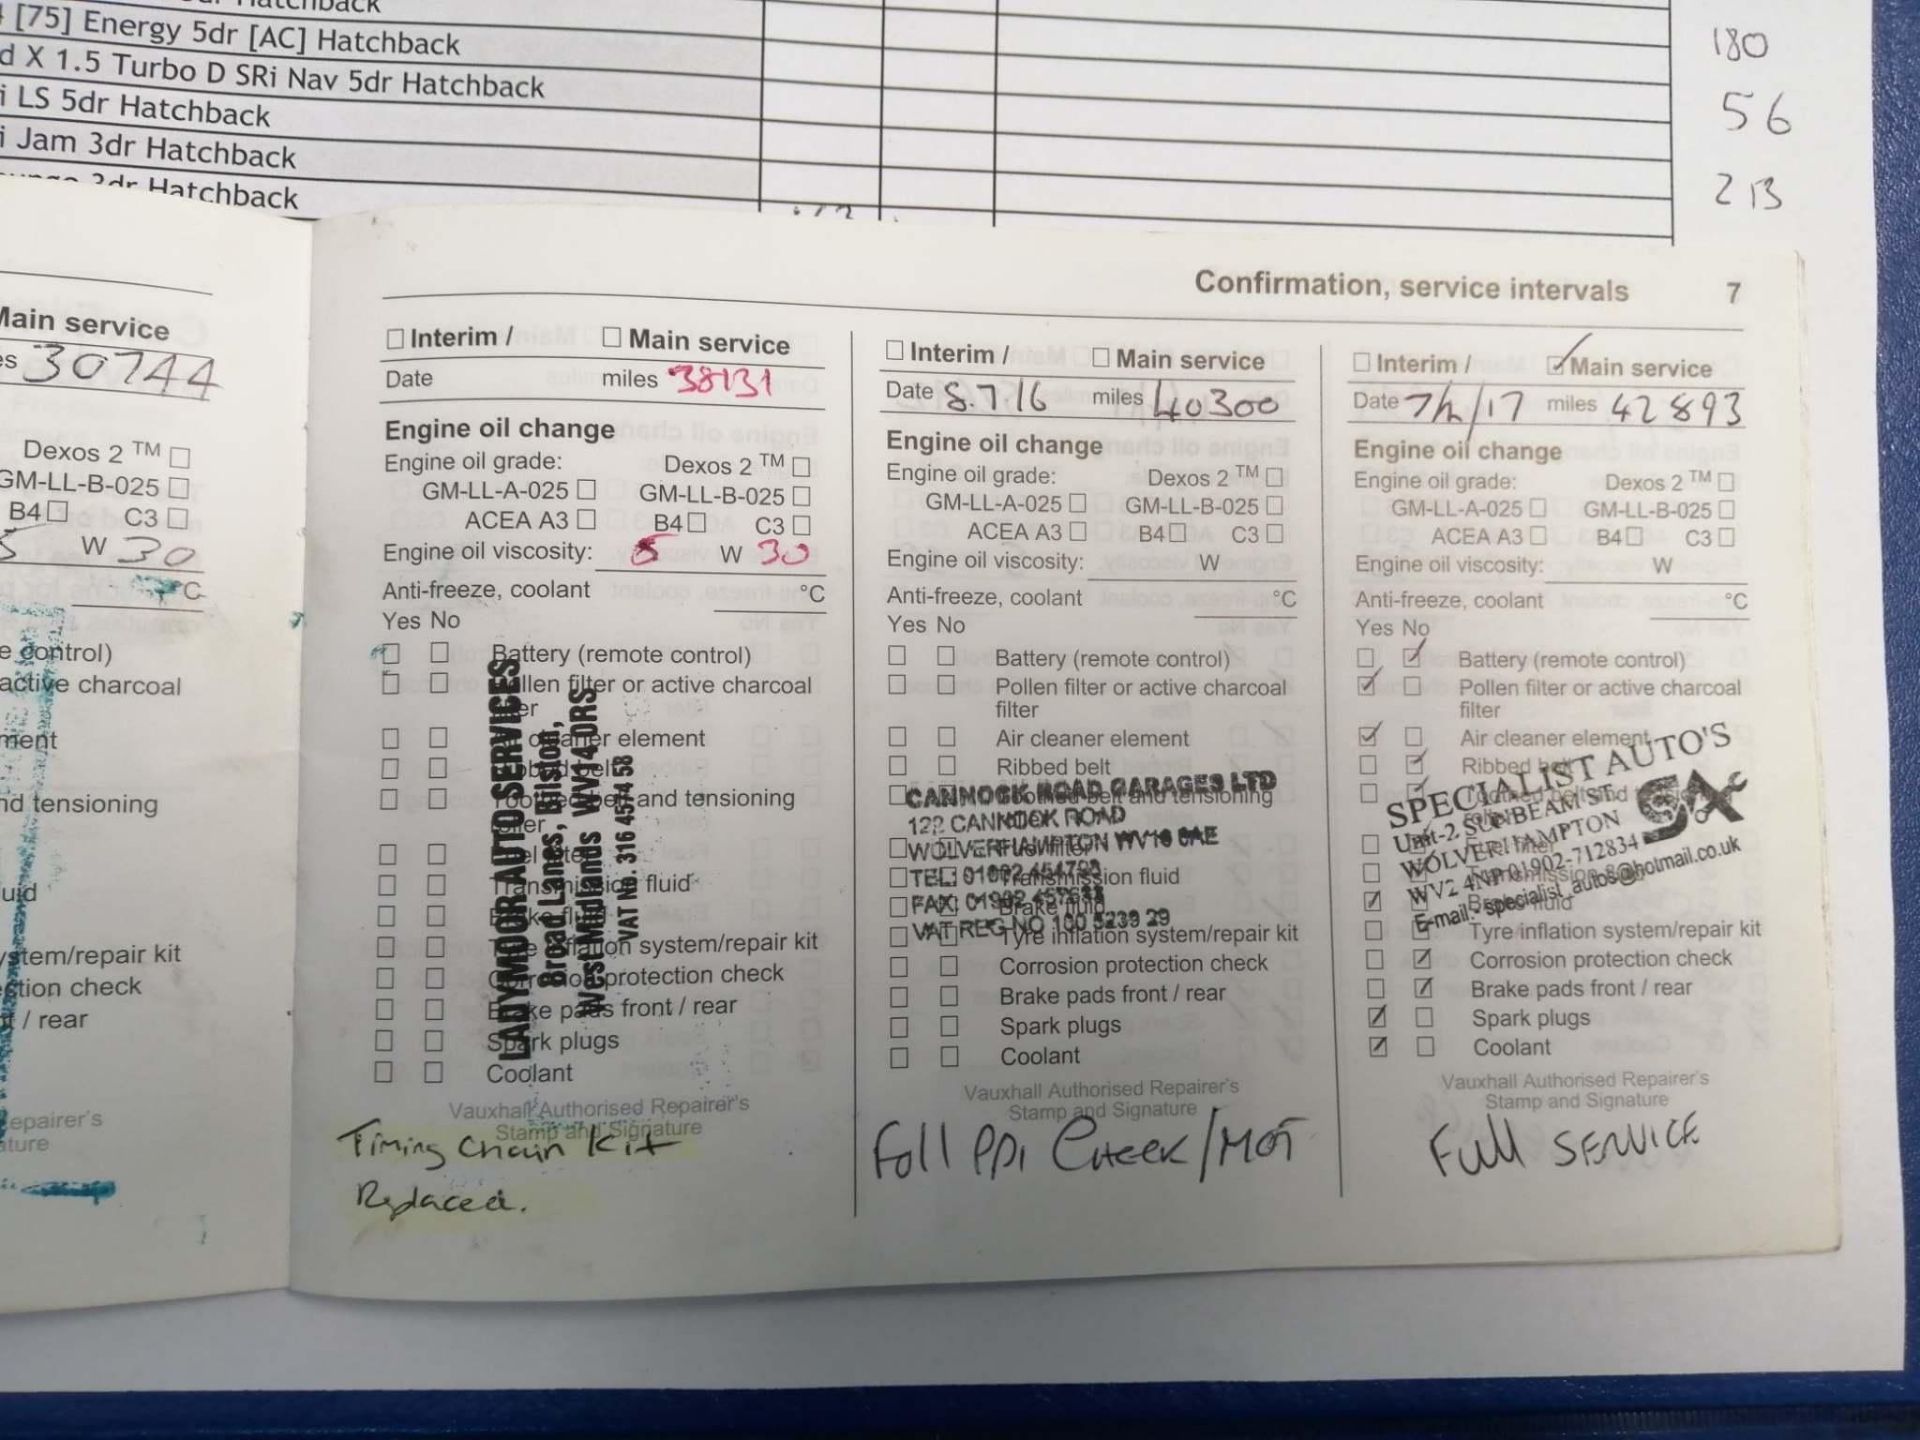 [75] Energy 5dr [AC] Hatchback
180
d X 1.5 Turbo D SRi Nav 5dr Hatchback
i LS 5dr Hatchback
56
i Jam 3dr Hatchback
3dr Hatchback
213
Confirmation, service intervals 7
Main service
30744
Dexos 2 ™
GM-LL-B-025
B4 C3
5 W 30
°C
e control)
active charcoal
ment
nd tensioning
uid
ystem/repair kit
ction check
t / rear
epairer's
ature
Interim / Main service
Date miles 38131
Engine oil change
Engine oil grade: Dexos 2 ™
GM-LL-A-025 GM-LL-B-025
ACEA A3 B4 C3
Engine oil viscosity: 5 W 30
Anti-freeze, coolant °C
Yes No
Battery (remote control)
Pollen filter or active charcoal
filter
Air cleaner element
Ribbed belt
Toothed belt and tensioning
roller
Fuel filter
Transmission fluid
Brake fluid
Tyre inflation system/repair kit
Corrosion protection check
Brake pads front / rear
Spark plugs
Coolant
LADYMOOR AUTO SERVICES
Broad Lanes, Bilston,
West Midlands WV14 0RS
VAT No. 316 4574 58
Vauxhall Authorised Repairer's
Stamp and Signature
Timing Chain Kit
Replaced.
Interim / Main service
Date 8.7 16 miles 40300
Engine oil change
Engine oil grade: Dexos 2 ™
GM-LL-A-025 GM-LL-B-025
ACEA A3 B4 C3
Engine oil viscosity: W
Anti-freeze, coolant °C
Yes No
Battery (remote control)
Pollen filter or active charcoal
filter
Air cleaner element
Ribbed belt
Toothed belt and tensioning
Transmission fluid
Brake fluid
Tyre inflation system/repair kit
Corrosion protection check
Brake pads front / rear
Spark plugs
Coolant
CANNOCK ROAD GARAGES LTD
122 CANNOCK ROAD
WOLVERHAMPTON WV10
TEL: 01902
FAX: 01902
VAT REG NO 100 5239 29
Vauxhall Authorised Repairer's
Stamp and Signature
Full PDi Check/MOT
Interim / Main service
Date 7/2/17 miles 42893
Engine oil change
Engine oil grade: Dexos 2 ™
GM-LL-A-025 GM-LL-B-025
ACEA A3 B4 C3
Engine oil viscosity: W
Anti-freeze, coolant °C
Yes No
Battery (remote control)
Pollen filter or active charcoal
filter
Air cleaner element
Ribbed belt
Brake fluid
Tyre inflation system/repair kit
Corrosion protection check
Brake pads front / rear
Spark plugs
Coolant
SPECIALIST AUTO'S
Unit-2 SUNBEAM ST
WOLVERHAMPTON
WV2 4NP 01902-712834
E-mail:- specialist_autos@hotmail.co.uk
Vauxhall Authorised Repairer's
Stamp and Signature
Full SERVICE